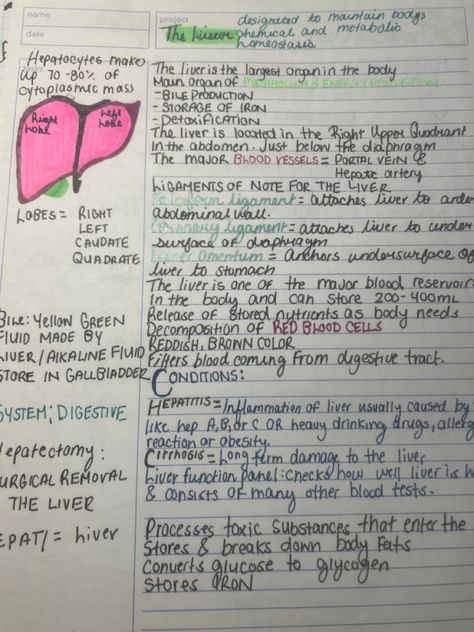 name
project
date
The Liver
designated to maintain bodys
chemical and metabolic
homeostasis
Hepatocytes make
up 70-80% of
cytoplasmic mass
Right
lobe
Left
lobe
LOBES = RIGHT
LEFT
CAUDATE
QUADRATE
BILE: Yellow Green
FLUID MADE BY
LIVER/AlKALINE FLUID
STORE IN GALLBLADDER
SYSTEM; DIGESTIVE
Hepatectomy:
SURGICAL REMOVAL
THE LIVER
HEPAT/= Liver
The liver is the largest organ in the body
Main organ of METABOLISM & ENERGY PRODUCTION
-BILE PRODUCTION
- STORAGE OF IRON
- DETOXIFICATION
The liver is located in the Right Upper Quadrant
In the abdomen. Just below the diaphragm
The major BLOOD VESSELS = PORTAL VEIN &
Hepatic artery
LIGAMENTS OF NOTE FOR THE LIVER
Falciform ligament = attaches liver to
abdominal wall.
Coronary ligament = attaches liver to under
surface of diaphragm
Lesser omentum = Anchors undersurface of
liver to stomach
The liver is one of the major blood reservoirs
In the body and can store 200-400mL
Release of stored nutrients as body needs
Decomposition of RED BLOOD CELLS
REDDISH, BROWN COLOR
Filters blood coming from digestive tract.
CONDITIONS:
HEPATITIS = Inflammation of liver usually caused by
like hep A,B,or C OR heavy drinking, drugs, allerg
reaction or obesity.
CIRRHOSIS = Long term damage to the liver
Liver function panel: checks how well liver is
& consists of many other blood tests.
Processes toxic substances that enter the
Stores & breaks down body fats
Converts glucose to glycogen
Stores IRON